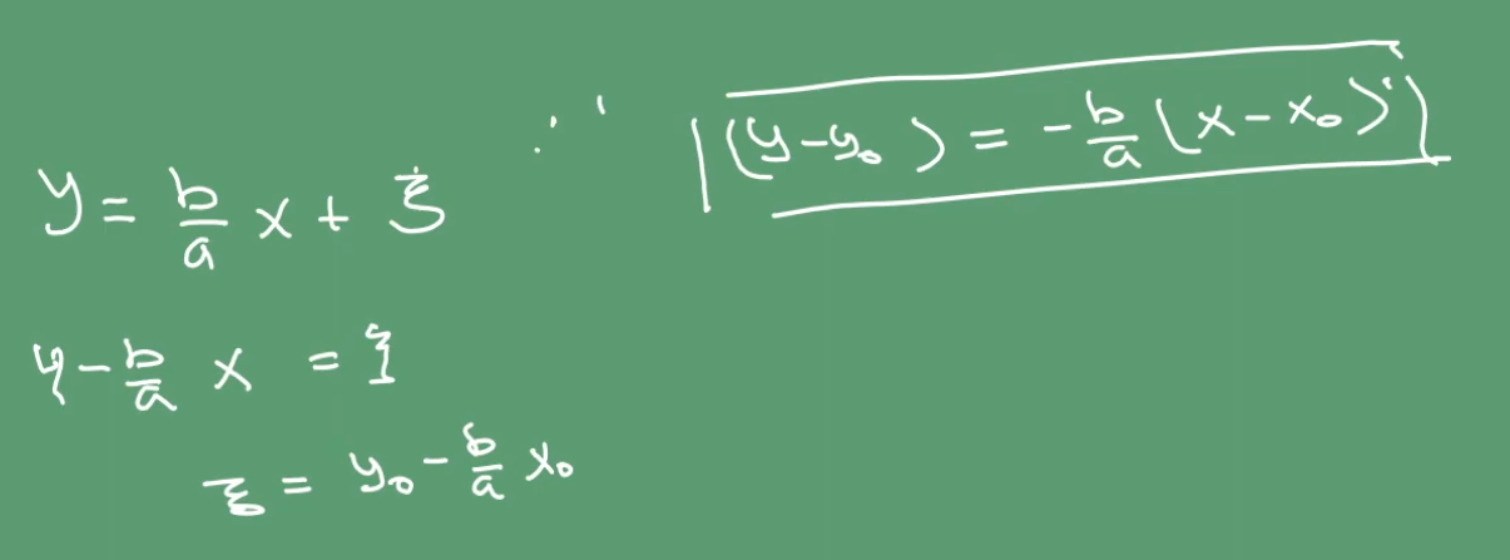 y = b/a x + ξ
y - b/a x = ξ
ξ = y₀ - b/a x₀
∴ (y - y₀) = - b/a (x - x₀)